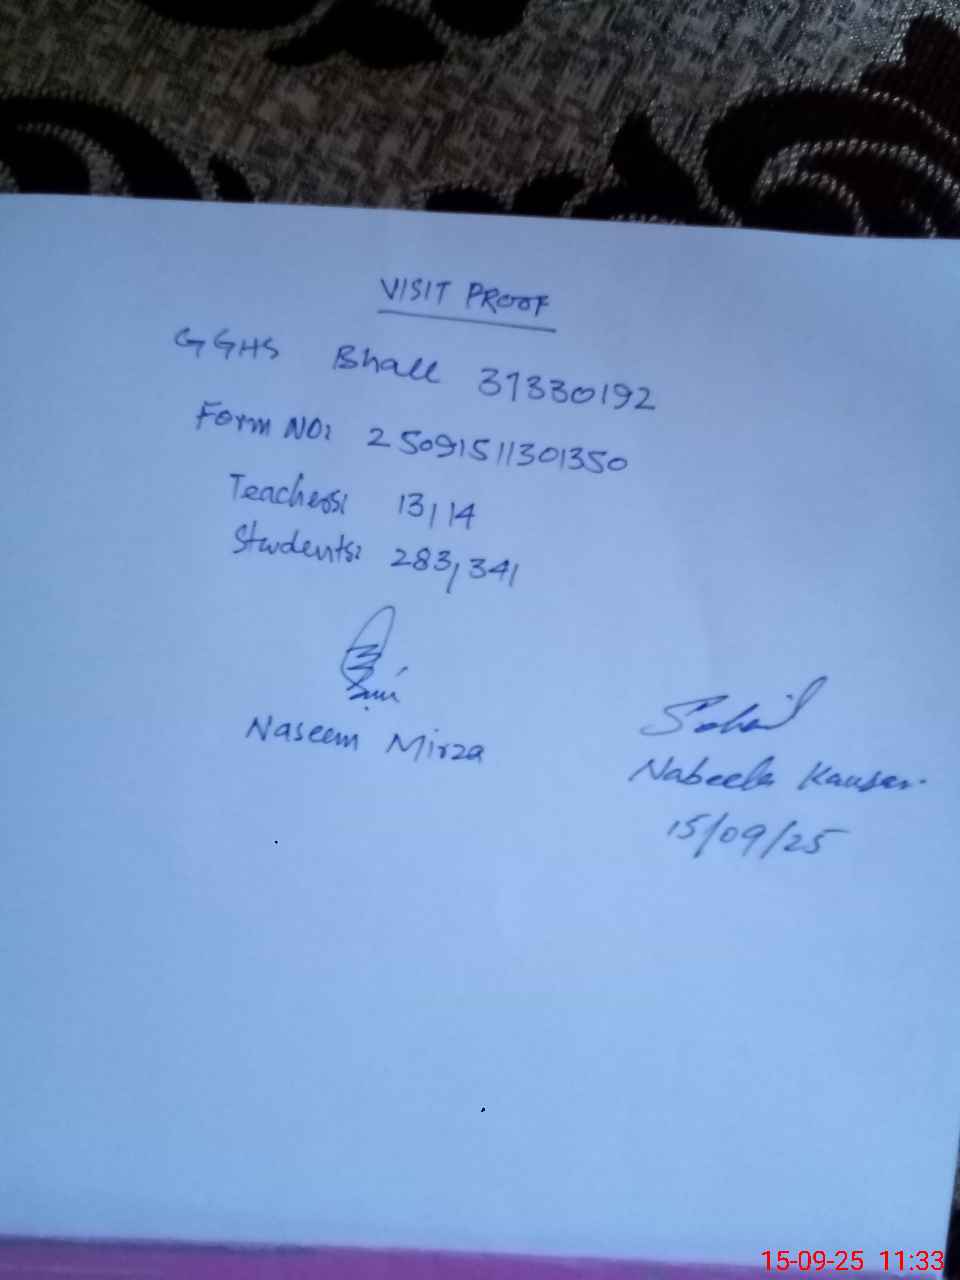 VISIT PROOF
GGHS Bhall 37330192
Form NO: 25091511301350
Teachers: 13/14
Students: 283/341
Naseem Mirza
Sohail
Nabeela Kausar
15/09/25
15-09-25 11:33